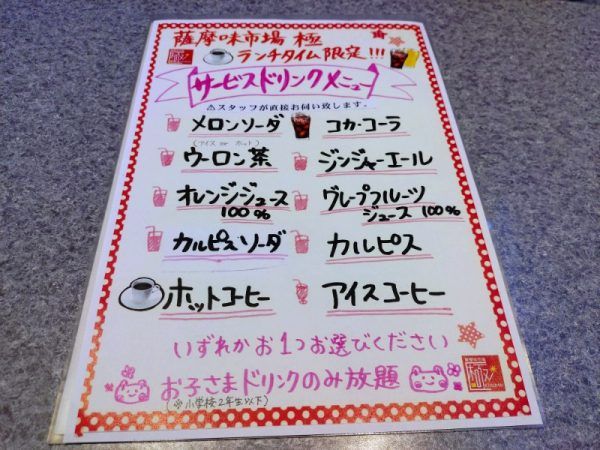 薩摩味市場 極
ランチタイム限定!!!
サービスドリンクメニュー
⚠スタッフが直接お伺い致します。
メロンソーダ
コカ・コーラ
(アイス or ホット)
ウーロン茶
ジンジャーエール
オレンジジュース
100%
グレープフルーツ
ジュース 100%
カルピスソーダ
カルピス
ホットコーヒー
アイスコーヒー
いずれかお1つお選びください
お子さまドリンクのみ放題
(※小学校2年生以下)